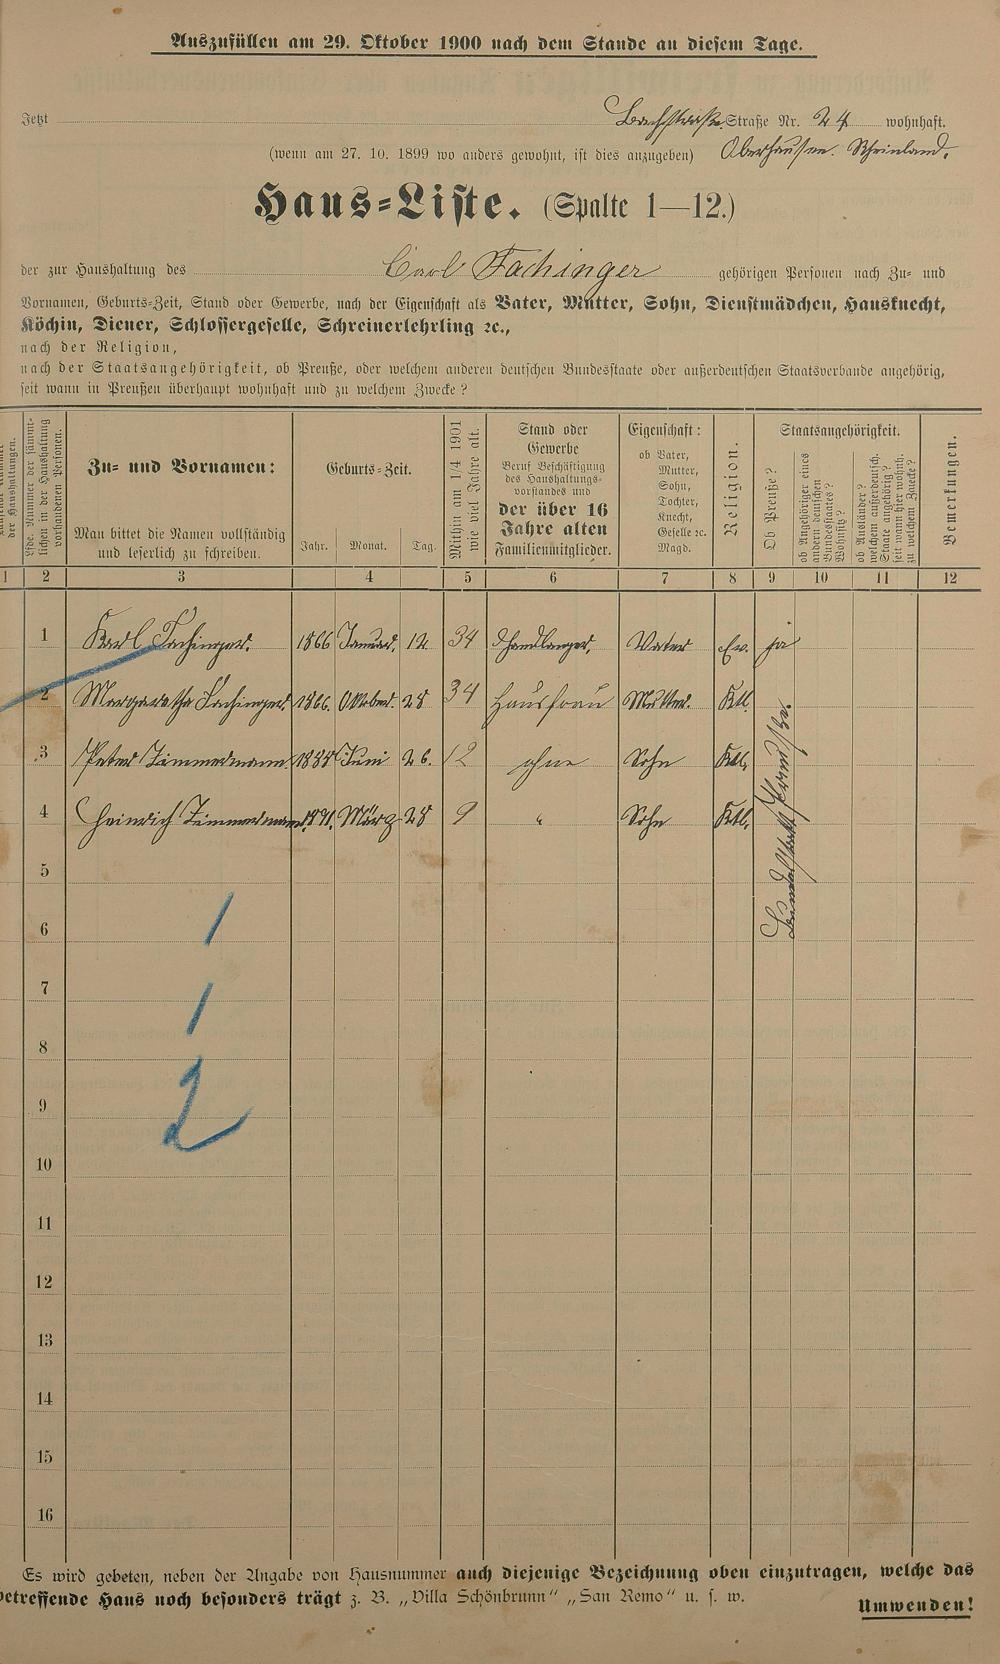 Auszufüllen am 29. Oktober 1900 nach dem Stande an diesem Tage.
Jetzt Bachstraße Straße Nr. 24 wohnhaft.
(wenn am 27. 10. 1899 wo anders gewohnt, ist dies anzugeben) Oberhausen. Rheinland.
Haus=Liste. (Spalte 1—12.)
der zur Haushaltung des Carl Fachinger gehörigen Personen nach Zu- und
Vornamen, Geburts-Zeit, Stand oder Gewerbe, nach der Eigenschaft als Vater, Mutter, Sohn, Dienstmädchen, Hausknecht,
Köchin, Diener, Schlossergeselle, Schreinerlehrling ꝛc.,
nach der Religion,
nach der Staatsangehörigkeit, ob Preuße, oder welchem anderen deutschen Bundesstaate oder außerdeutschen Staatsverbande angehörig,
seit wann in Preußen überhaupt wohnhaft und zu welchem Zwecke?
der Haushaltungen.
Lfde. Nummer der sämmt-
lichen in der Haushaltung
vorhandenen Personen.
Zu- und Vornamen:
Man bittet die Namen vollständig
und leserlich zu schreiben.
Geburts-Zeit.
Jahr. Monat. Tag.
Mithin am 1/4 1901
wie viel Jahre alt.
Stand oder
Gewerbe
Beruf Beschäftigung
des Haushaltungs-
vorstandes und
der über 16
Jahre alten
Familienmitglieder.
Eigenschaft:
ob Vater,
Mutter,
Sohn,
Tochter,
Knecht,
Geselle ꝛc.
Magd.
Religion.
Staatsangehörigkeit.
Ob Preuße?
ob Angehöriger eines
andern deutschen
Bundesstaates?
Wohnsitz?
ob Ausländer?
welchem außerdeutsch.
Staate angehörig?
seit wann hier wohnh.
zu welchem Zwecke?
Bemerkungen.
1 2 3 4 5 6 7 8 9 10 11 12
1 Karl Fachinger. 1866 Januar. 12. 34 Handlanger. Vater Ev. ja
2 Margaratha Fachinger. 1866. Oktober. 28 34 Hausfrau Mutter. Ktl.
3 Peter Zimmermann. 1888 Juni 26. 12 ohne Sohn Ktl.
4 Heinrich Zimmermann. 1891. März 28 9 " Sohn Ktl.
5
6 1
7 1
8
9 2
10
11
12
13
14
15
16
Es wird gebeten, neben der Angabe von Hausnummer auch diejenige Bezeichnung oben einzutragen, welche das
betreffende Haus noch besonders trägt z. B. „Villa Schönbrunn" „San Remo" u. s. w.
Umwenden!